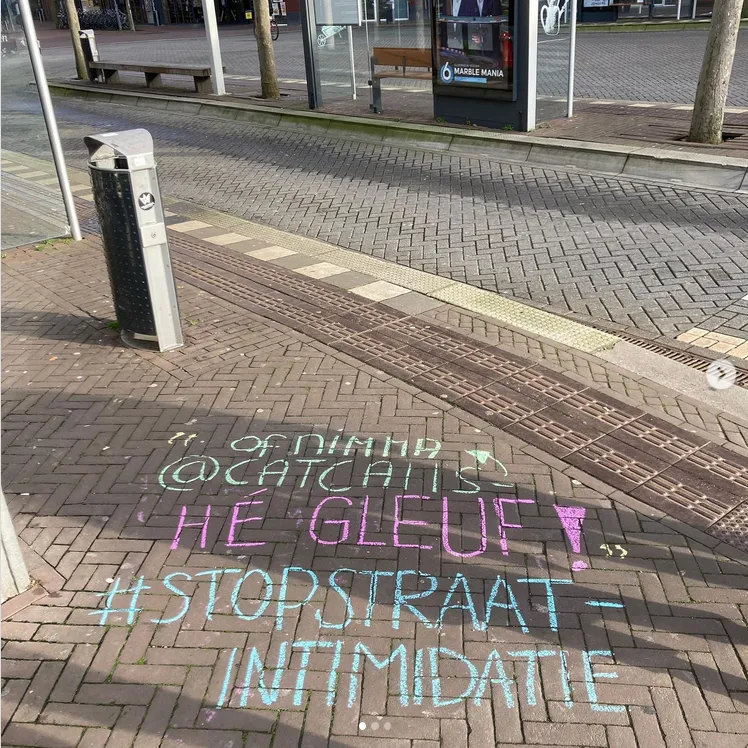 6 MARBLE MANIA
"
OFNIMMA
@CATCALLS_
HÉ GLEUF!
"
#STOPSTRAAT-
INTIMIDATIE